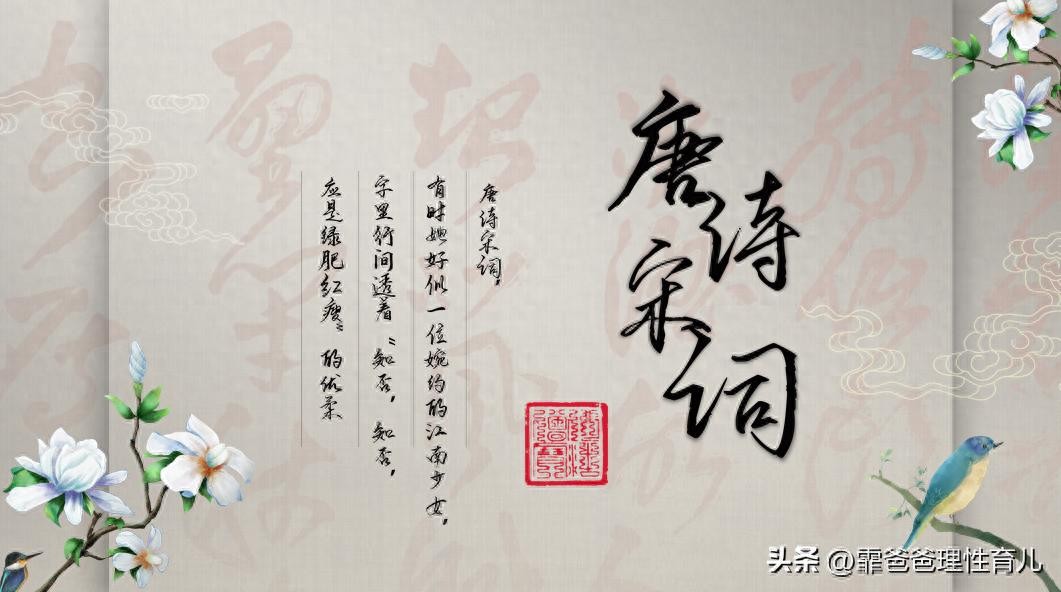 唐诗
宋词
唐诗宋词,
有时她好似一位婉约的江南少女,
字里行间透着“知否,知否,
应是绿肥红瘦”的优柔
头条 @霏爸爸理性育儿